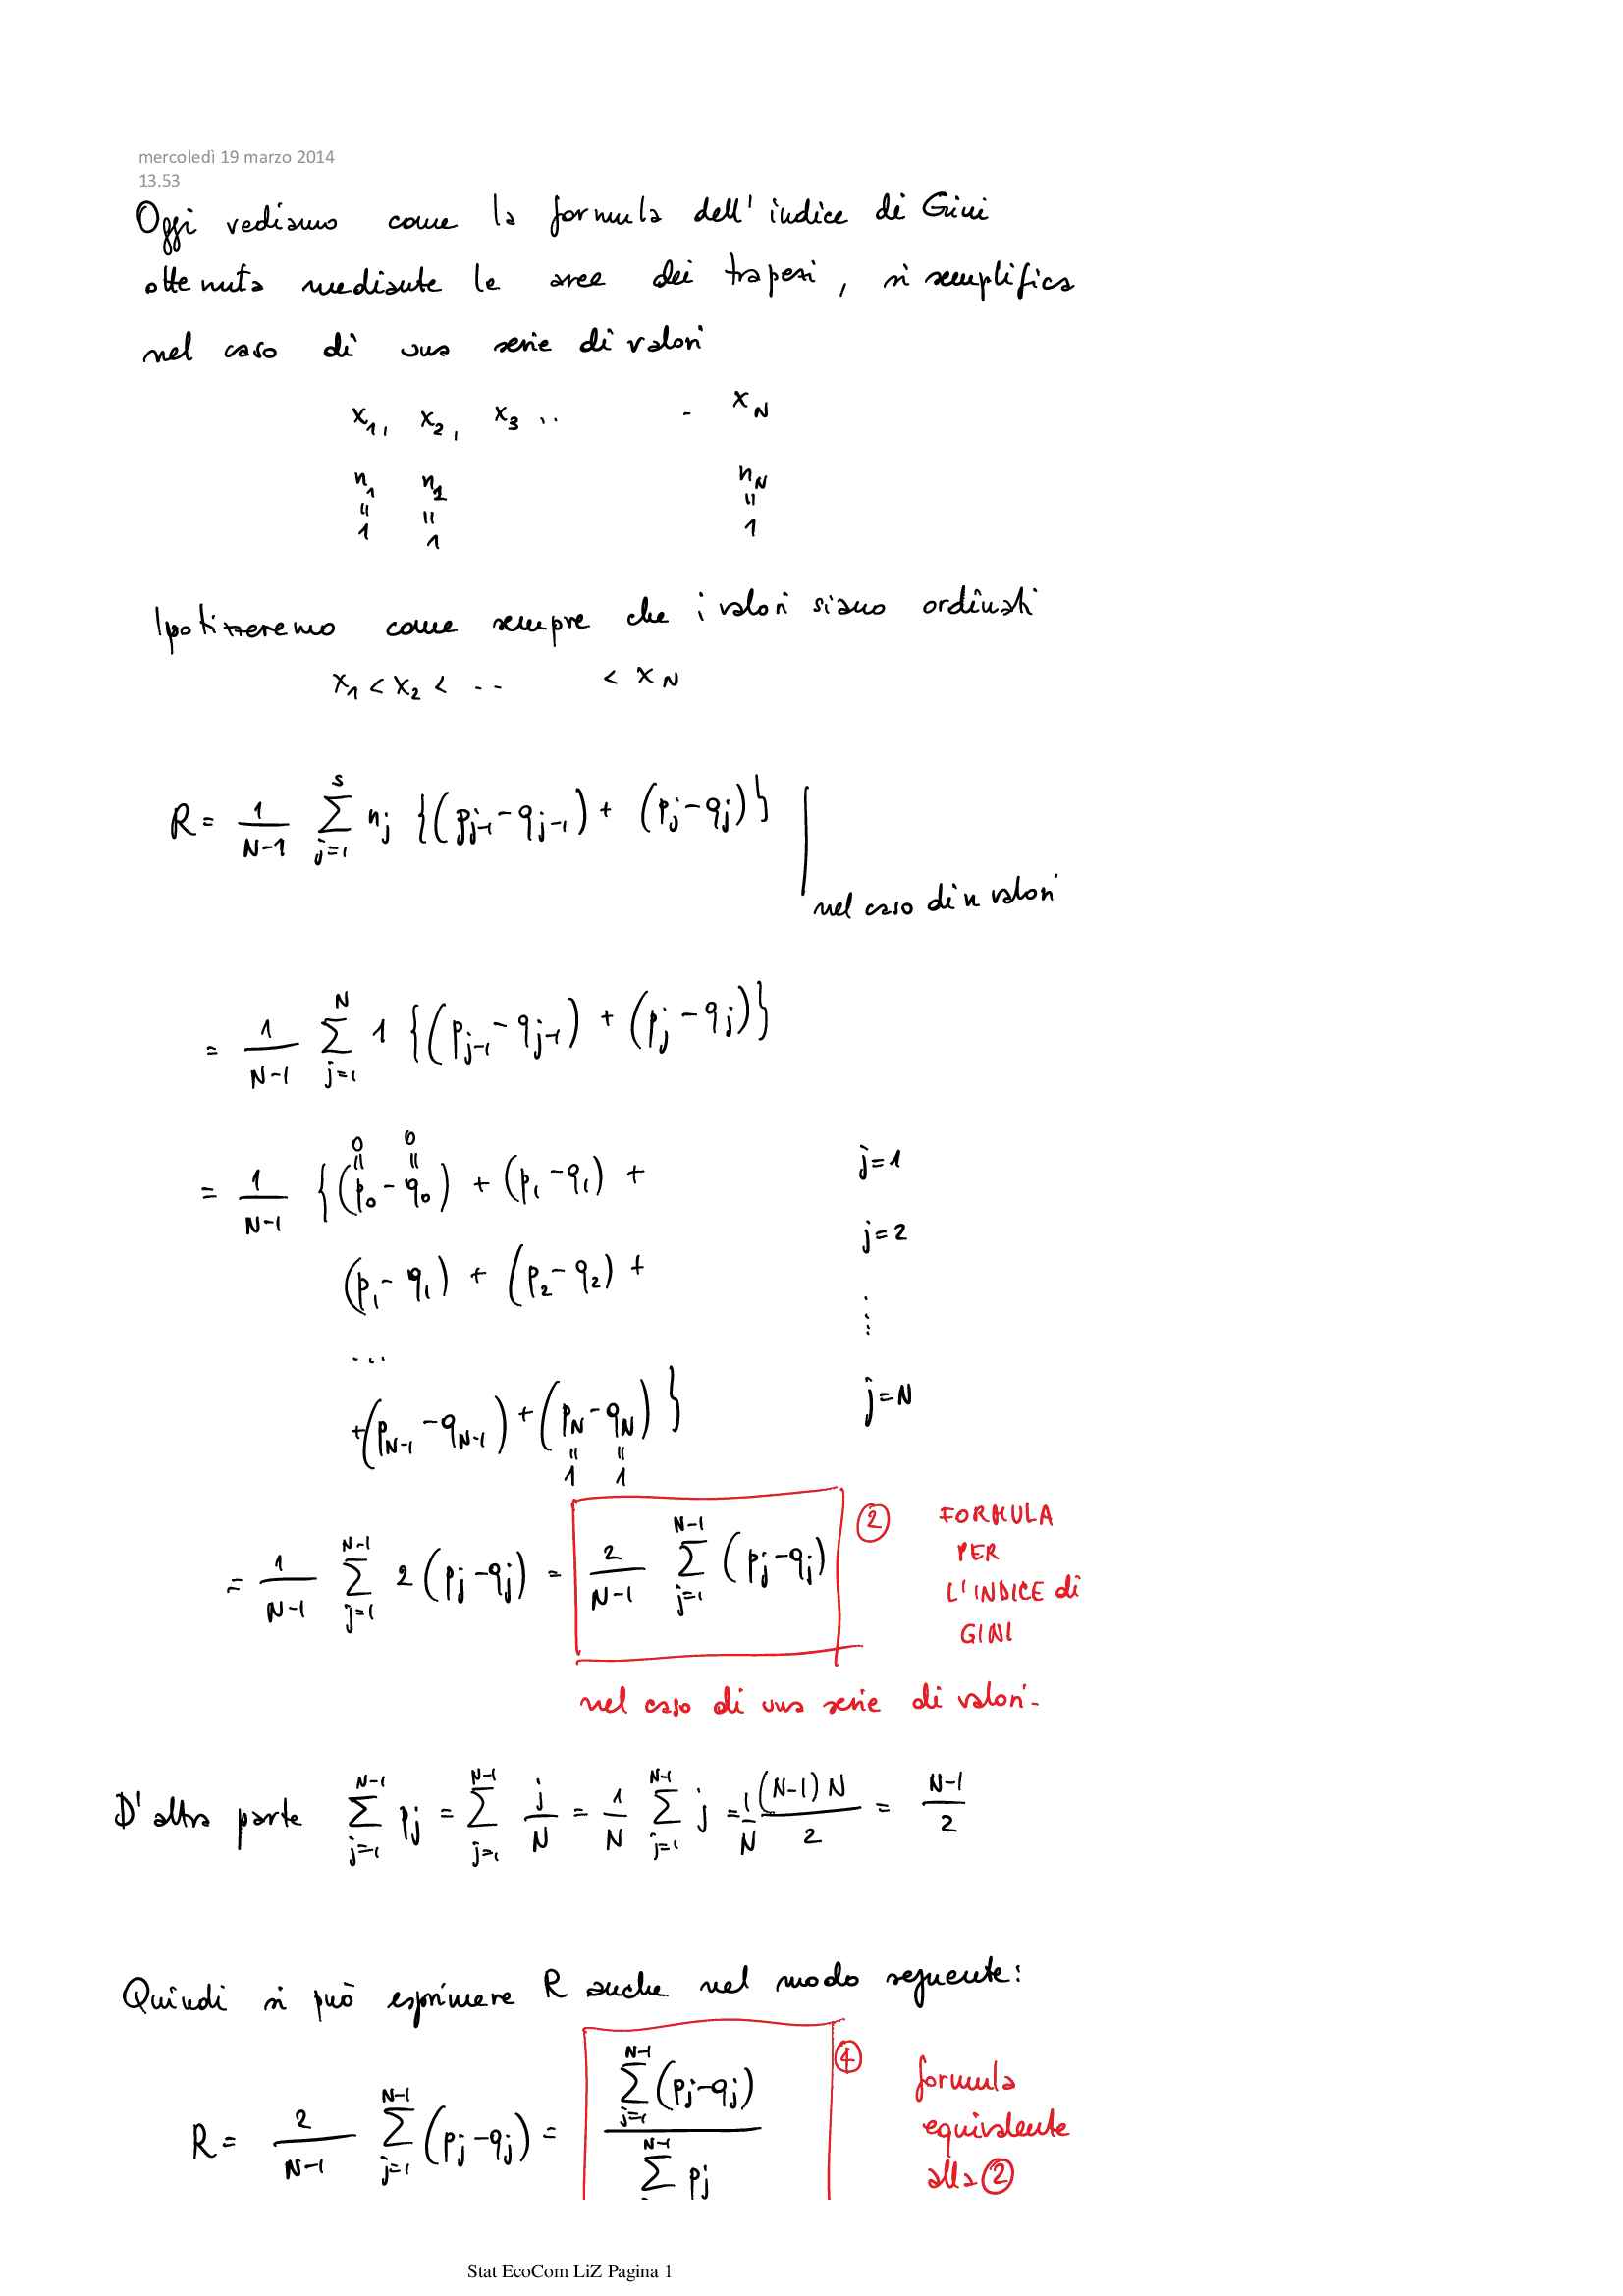 mercoledì 19 marzo 2014
13.53
Oggi vediamo come la formula dell'indice di Gini
ottenuta mediante le aree dei trapezi, si semplifica
nel caso di una serie di valori
x₁, x₂, x₃ .. - x_N
n₁ n₂ n_N
= = =
1 1 1
Ipotizzeremo come sempre che i valori siano ordinati
x₁ < x₂ < -- < x_N
R = 1/(N-1) Σ_{j=1}^{s} n_j {(p_{j-1} - q_{j-1}) + (p_j - q_j)}
nel caso di n valori
= 1/(N-1) Σ_{j=1}^{N} 1 {(p_{j-1} - q_{j-1}) + (p_j - q_j)}
0 0
= =
= 1/(N-1) {(p₀ - q₀) + (p₁ - q₁) + j=1
(p₁ - q₁) + (p₂ - q₂) + j=2
... ⋮
+(p_{N-1} - q_{N-1}) + (p_N - q_N)} j=N
= =
1 1
= 1/(N-1) Σ_{j=1}^{N-1} 2 (p_j - q_j) = 2/(N-1) Σ_{j=1}^{N-1} (p_j - q_j) ② FORMULA
PER
L'INDICE di
GINI
nel caso di una serie di valori-
D'altra parte Σ_{j=1}^{N-1} p_j = Σ_{j=1}^{N-1} j/N = 1/N Σ_{j=1}^{N-1} j = 1/N (N-1)N/2 = (N-1)/2
Quindi si può esprimere R anche nel modo seguente:
R = 2/(N-1) Σ_{j=1}^{N-1} (p_j - q_j) = Σ_{j=1}^{N-1} (p_j - q_j) / Σ^{N-1} p_j ④ formula
equivalente
alla ②
Stat EcoCom LiZ Pagina 1